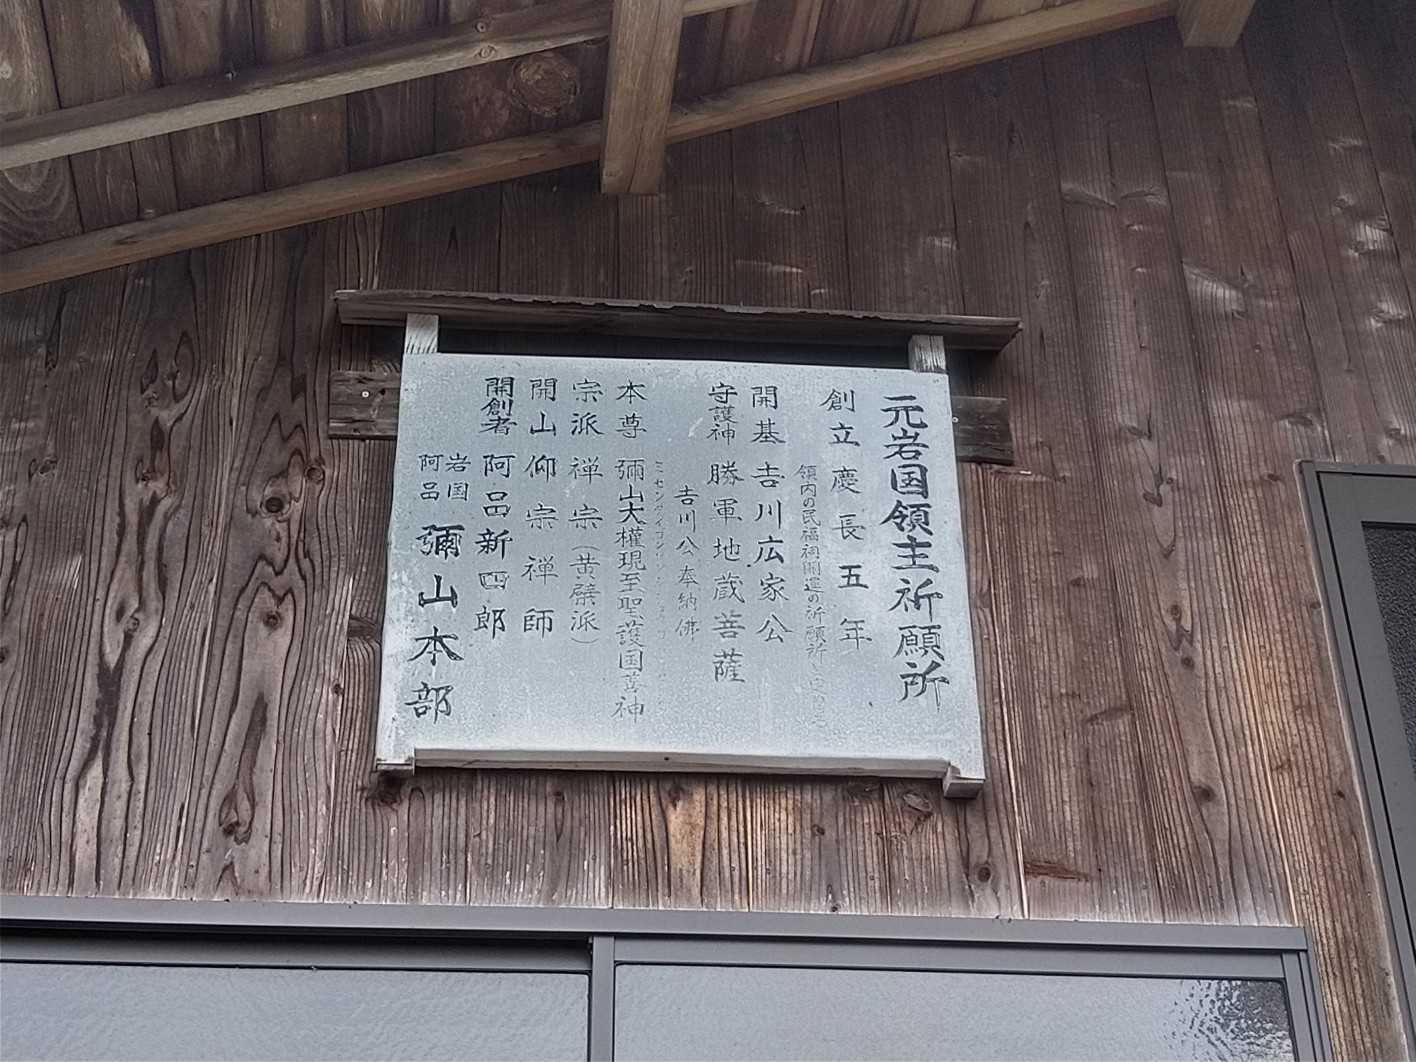 元岩国領主祈願所
創立 慶長五年
領内の民福祠開運の祈願所
開基 吉川広家公
守護神 勝軍地蔵菩薩
吉川公奉納佛
本尊 彌山大權現至聖護国善神
宗派 禅宗(黄檗派)
開山 仰宗禅師
開創者 阿品新四郎
岩国
阿品 彌山本部